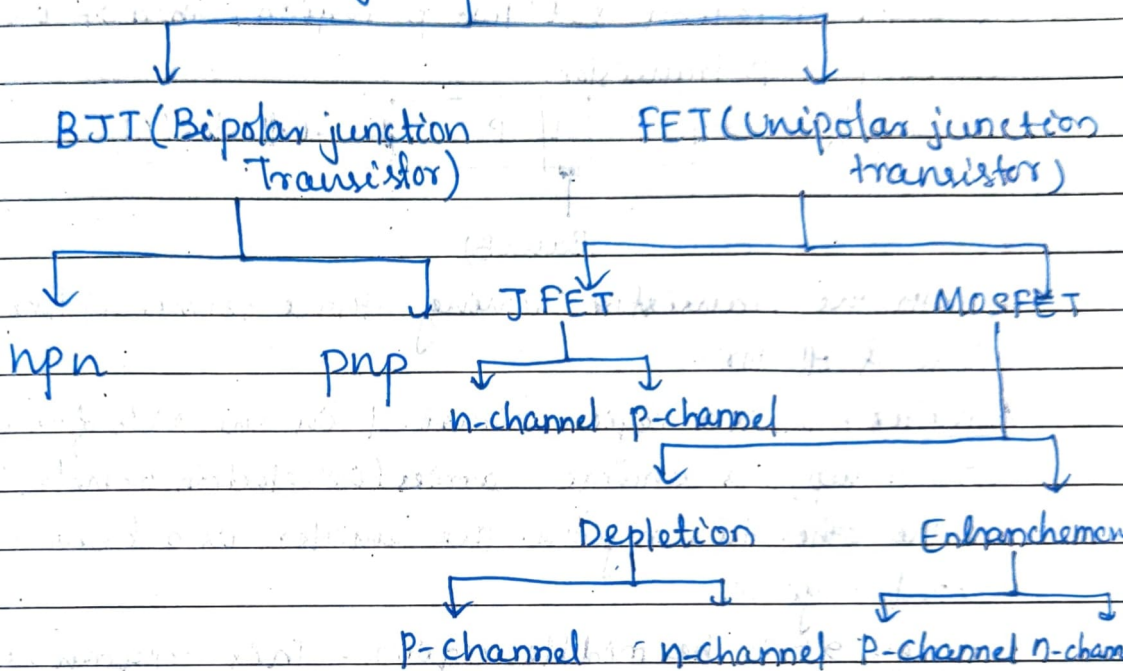 BJT(Bipolar junction
Transistor)
FET(Unipolar junction
transistor)
npn
pnp
JFET
MOSFET
n-channel p-channel
Depletion
Enhanchemen
P-channel n-channel P-channel n-chann